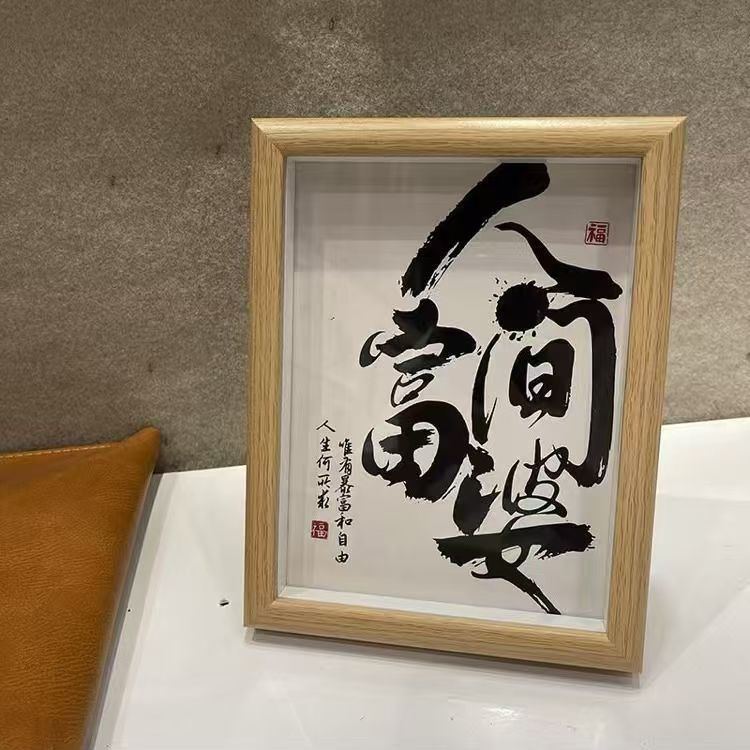 人间富婆
人生何所求
唯有暴富和自由
福
福